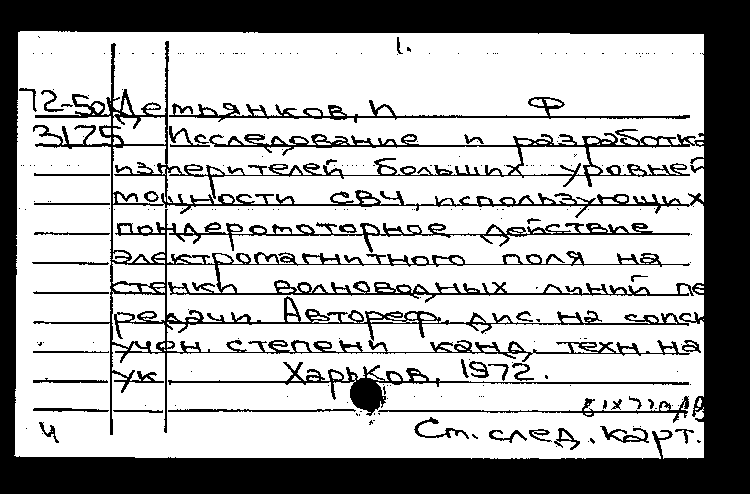 1.
72-50к Демьянков, И Ф
3175 Исследование и разработка
измерителей больших уровней
мощности СВЧ, использующих
пондеромоторное действие
электромагнитного поля на
стенки волноводных линий пе
редачи. Автореф. дис. на соиск
учен. степени канд. техн. на
ук. Харьков, 1972.
Ч
См. след. карт.